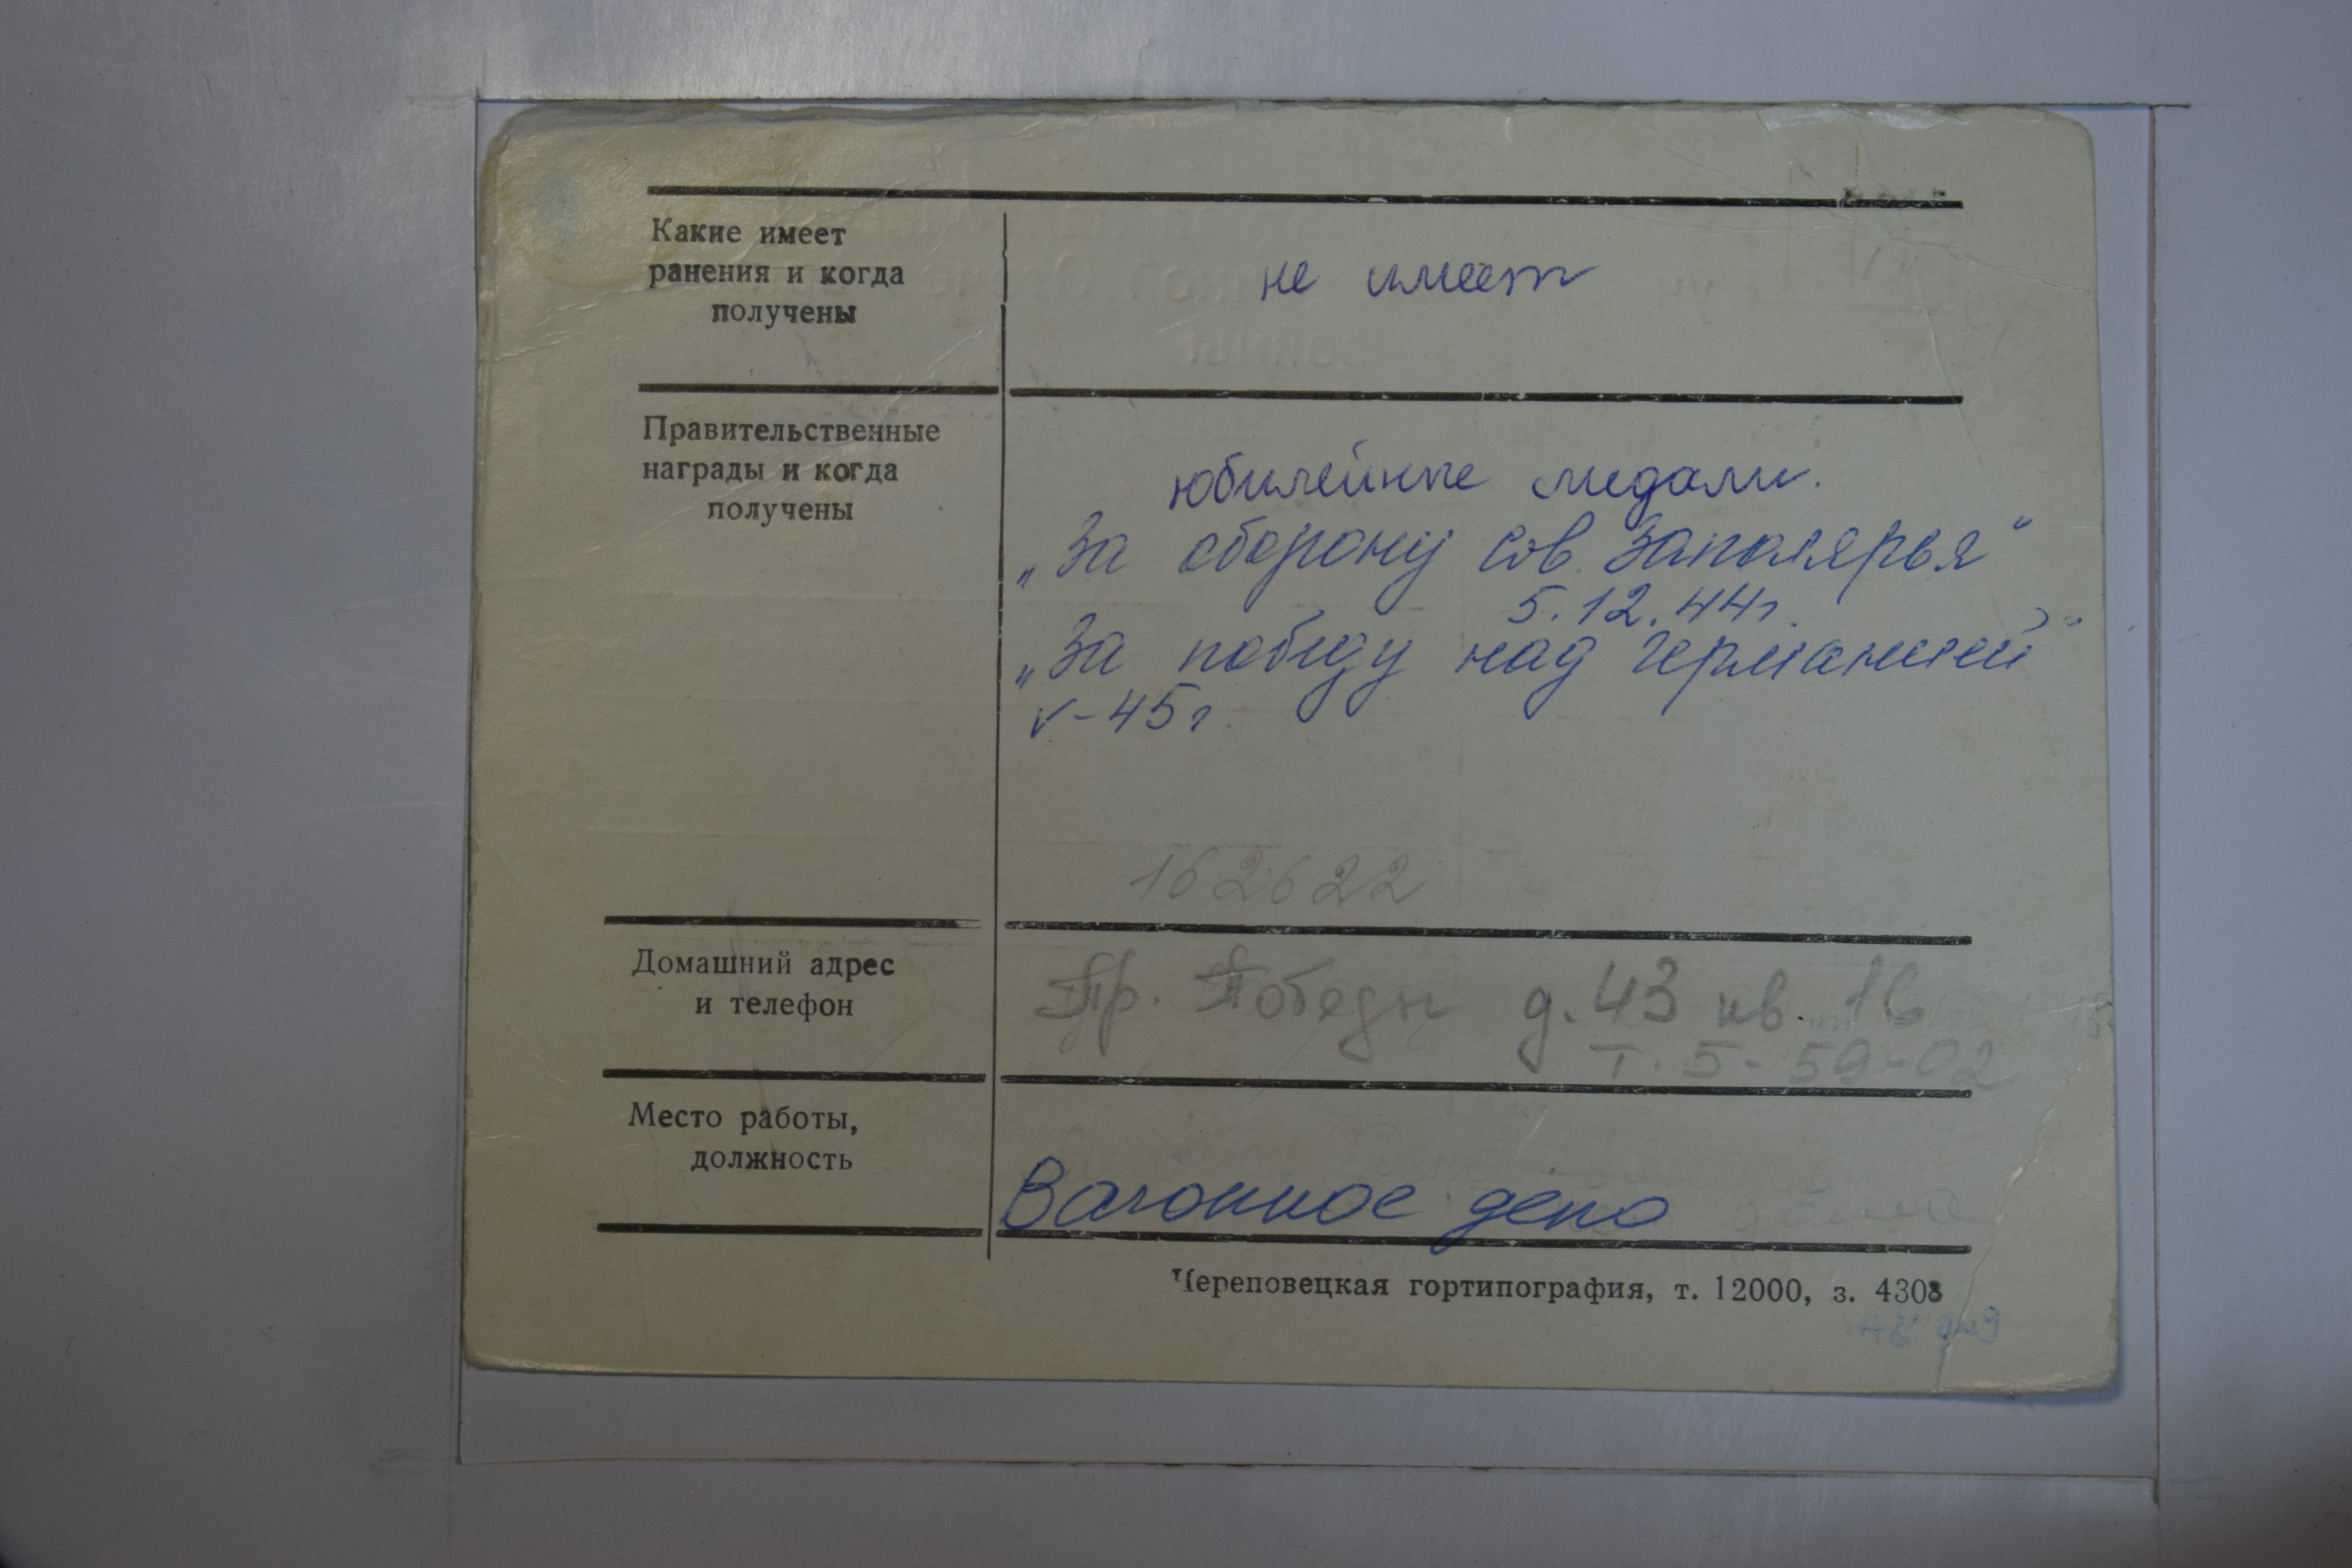 Какие имеет
ранения и когда
получены
не имеет
Правительственные
награды и когда
получены
юбилейные медали.
„За оборону Сов. Заполярья“
5.12.44г.
„За победу над Германией“
V-45г.
162622
Домашний адрес
и телефон
Пр. Победы д. 43 кв. 16
т. 5-59-02
Место работы,
должность
Вагонное депо
Череповецкая гортипография, т. 12000, з. 4308